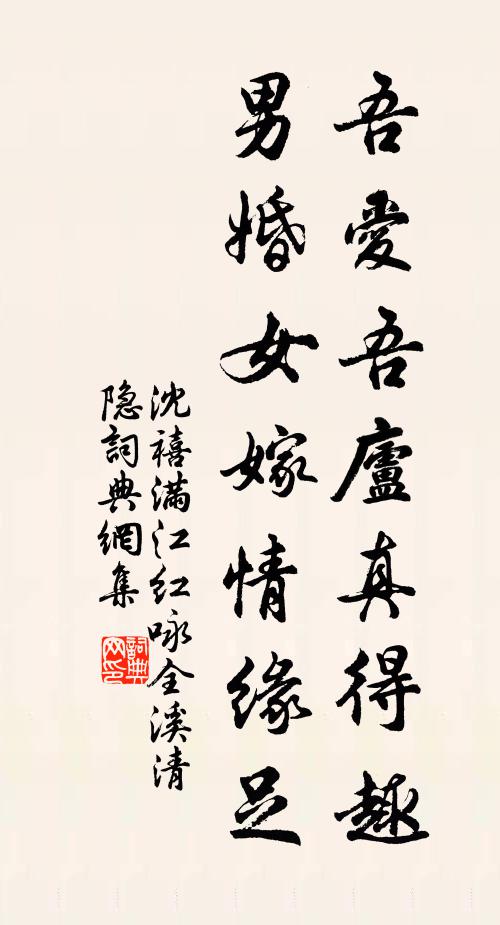 吾愛吾廬真得趣
男婚女嫁情緣足
沈禧满江红咏全溪清
隐詞典網集
詞典网印